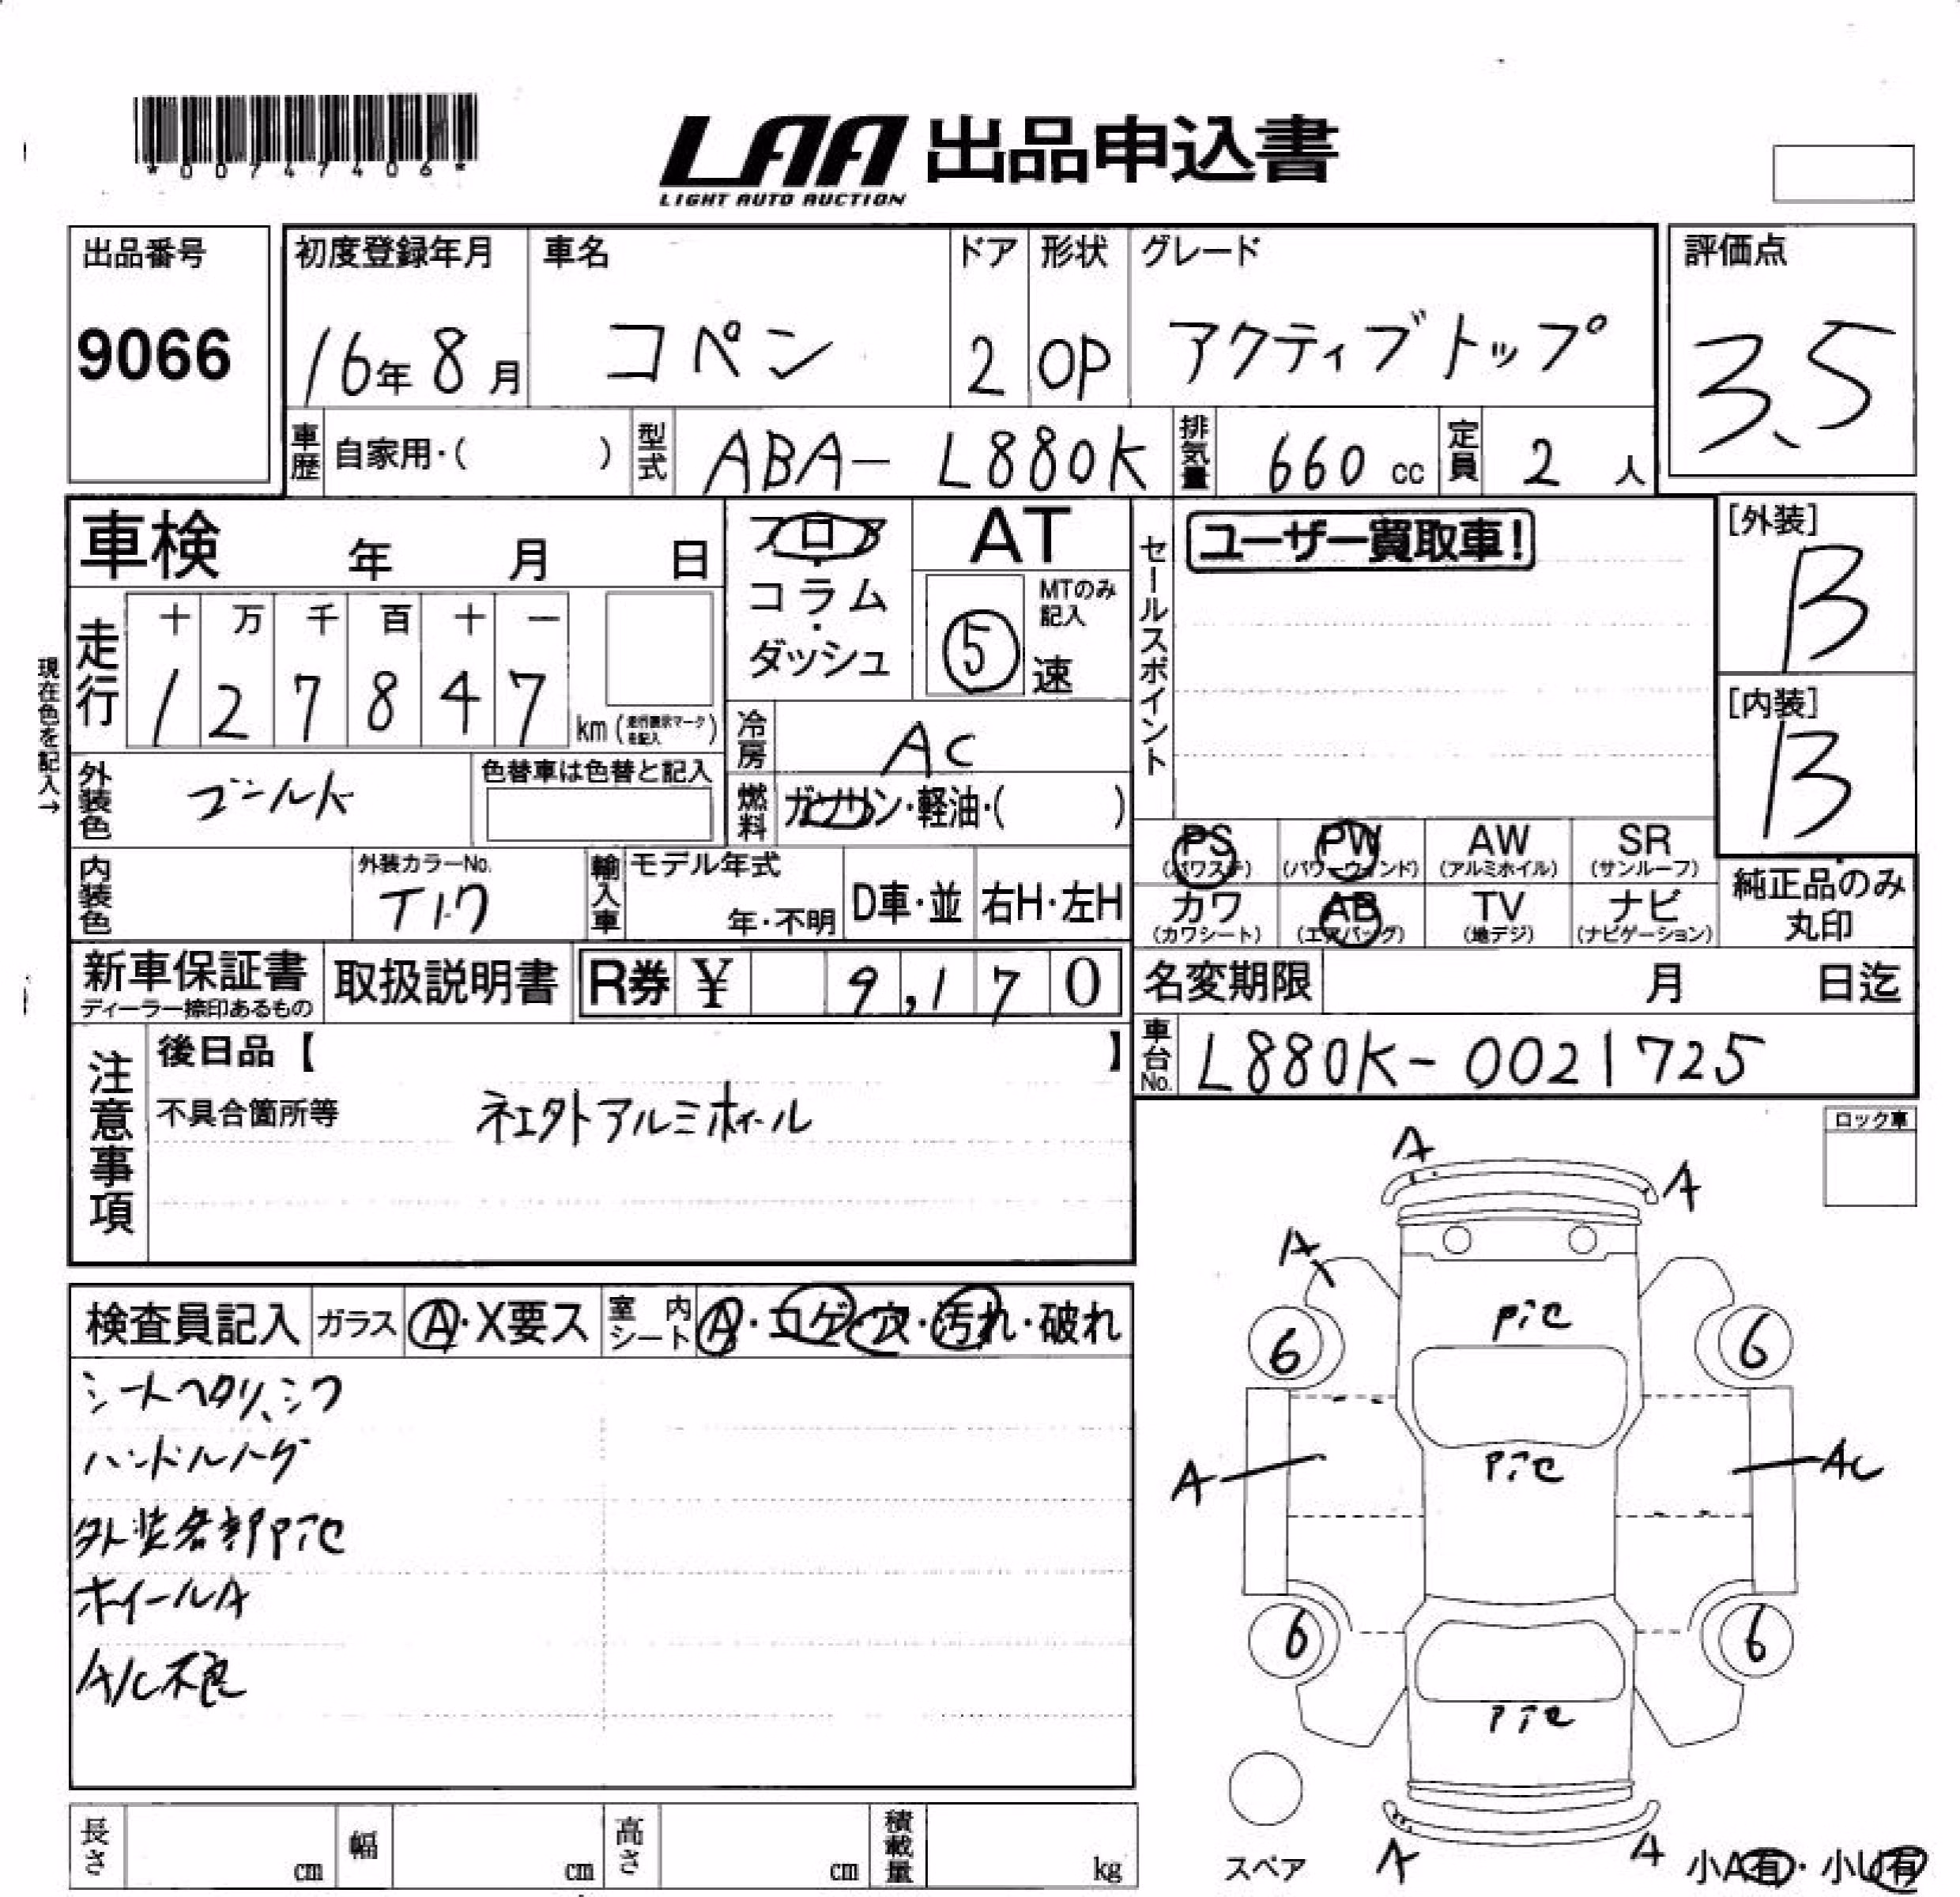 *00747406*
LAA 出品申込書
LIGHT AUTO AUCTION
出品番号
9066
初度登録年月
16年 8月
車名
コペン
ドア
2
形状
OP
グレード
アクティブトップ
評価点
3.5
車歴 自家用・( )
型式 ABA- L880K
排気量 660 cc
定員 2 人
車検 年 月 日
フロア・コラム・ダッシュ
AT
MTのみ記入
5速
セールスポイント
ユーザー買取車!
[外装]
B
[内装]
B
現在色を記入→
走行
十 万 千 百 十 一
1 2 7 8 4 7 km
冷房 AC
外装色 ゴールド
色替車は色替と記入
燃料 ガソリン・軽油・( )
内装色
外装カラーNo.
T17
輸入車
モデル年式
年・不明
D車・並
右H・左H
PS (パワステ)
PW (パワーウィンド)
AW (アルミホイル)
SR (サンルーフ)
カワ (カワシート)
AB (エアバッグ)
TV (地デジ)
ナビ (ナビゲーション)
純正品のみ丸印
新車保証書
ディーラー捺印あるもの
取扱説明書
R券 ¥ 9,170
名変期限 月 日迄
車台No. L880K-0021725
注意事項
後日品【 】
不具合箇所等 社外アルミホイール
ロック車
検査員記入
ガラス A・X要ス
室内シート A・コゲ・穴・汚れ・破れ
シートヘタリ、シワ
ハンドルハゲ
外装各部Pイモ
ホイールA
A/C不良
A
A
A
Pイモ
6
6
Pイモ
A
AC
6
6
Pイモ
スペア
A
A
小A有・小U有
長さ cm
幅 cm
高さ cm
積載量 kg